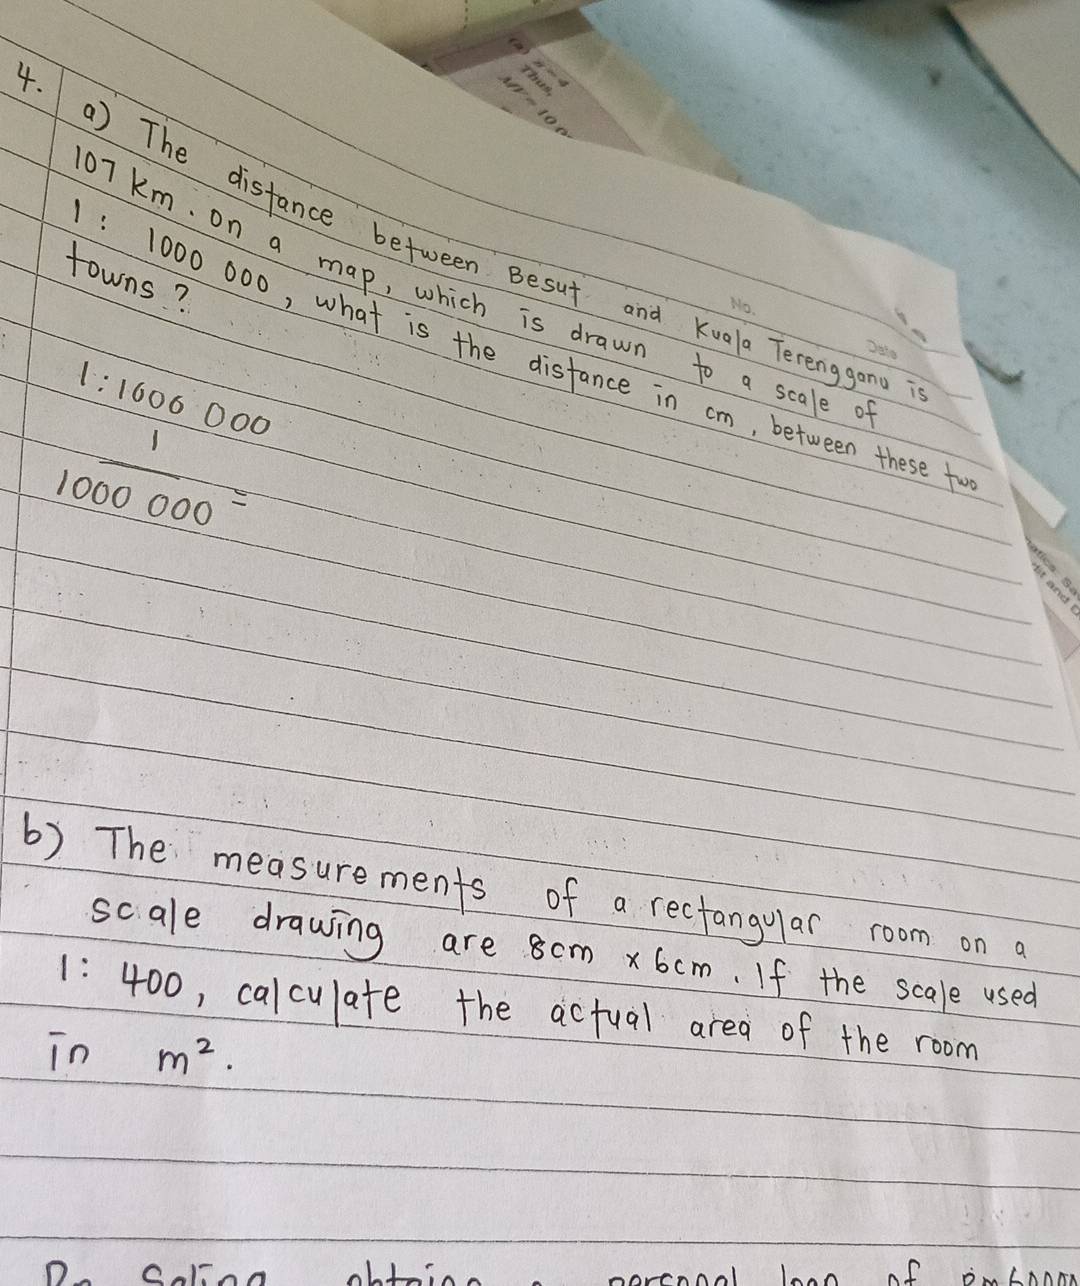 (a) n = 4
Thus,
MV = 100
No.
Date
4. a) The distance between Besut and Kuala Terengganu is
107 km. on a map, which is drawn to a scale of
1: 1000 000, what is the distance in cm, between these two
towns?
1:1000 000
1
1000 000 =
b) The measurements of a rectangular room on a
scale drawing are 8cm x 6cm. If the scale used
1: 400, calculate the actual area of the room
in m².
personal loan of